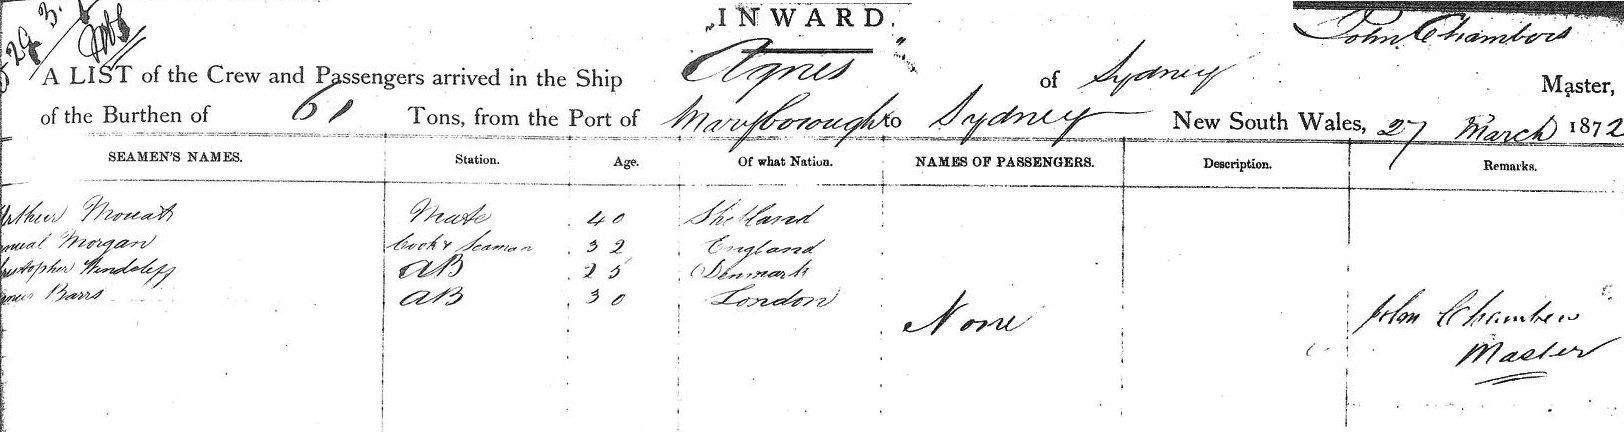 „INWARD.„
John Chambers
A LIST of the Crew and Passengers arrived in the Ship Agnes of Sydney Master,
of the Burthen of 61 Tons, from the Port of Maryborough to Sydney New South Wales, 27 March 1872
SEAMEN'S NAMES. Station. Age. Of what Nation. NAMES OF PASSENGERS. Description. Remarks.
Mouat Mate 40 Shetland
Morgan Cook & Seaman 32 England
AB 25 Denmark
Barrs AB 30 London
None John Chambers
Master